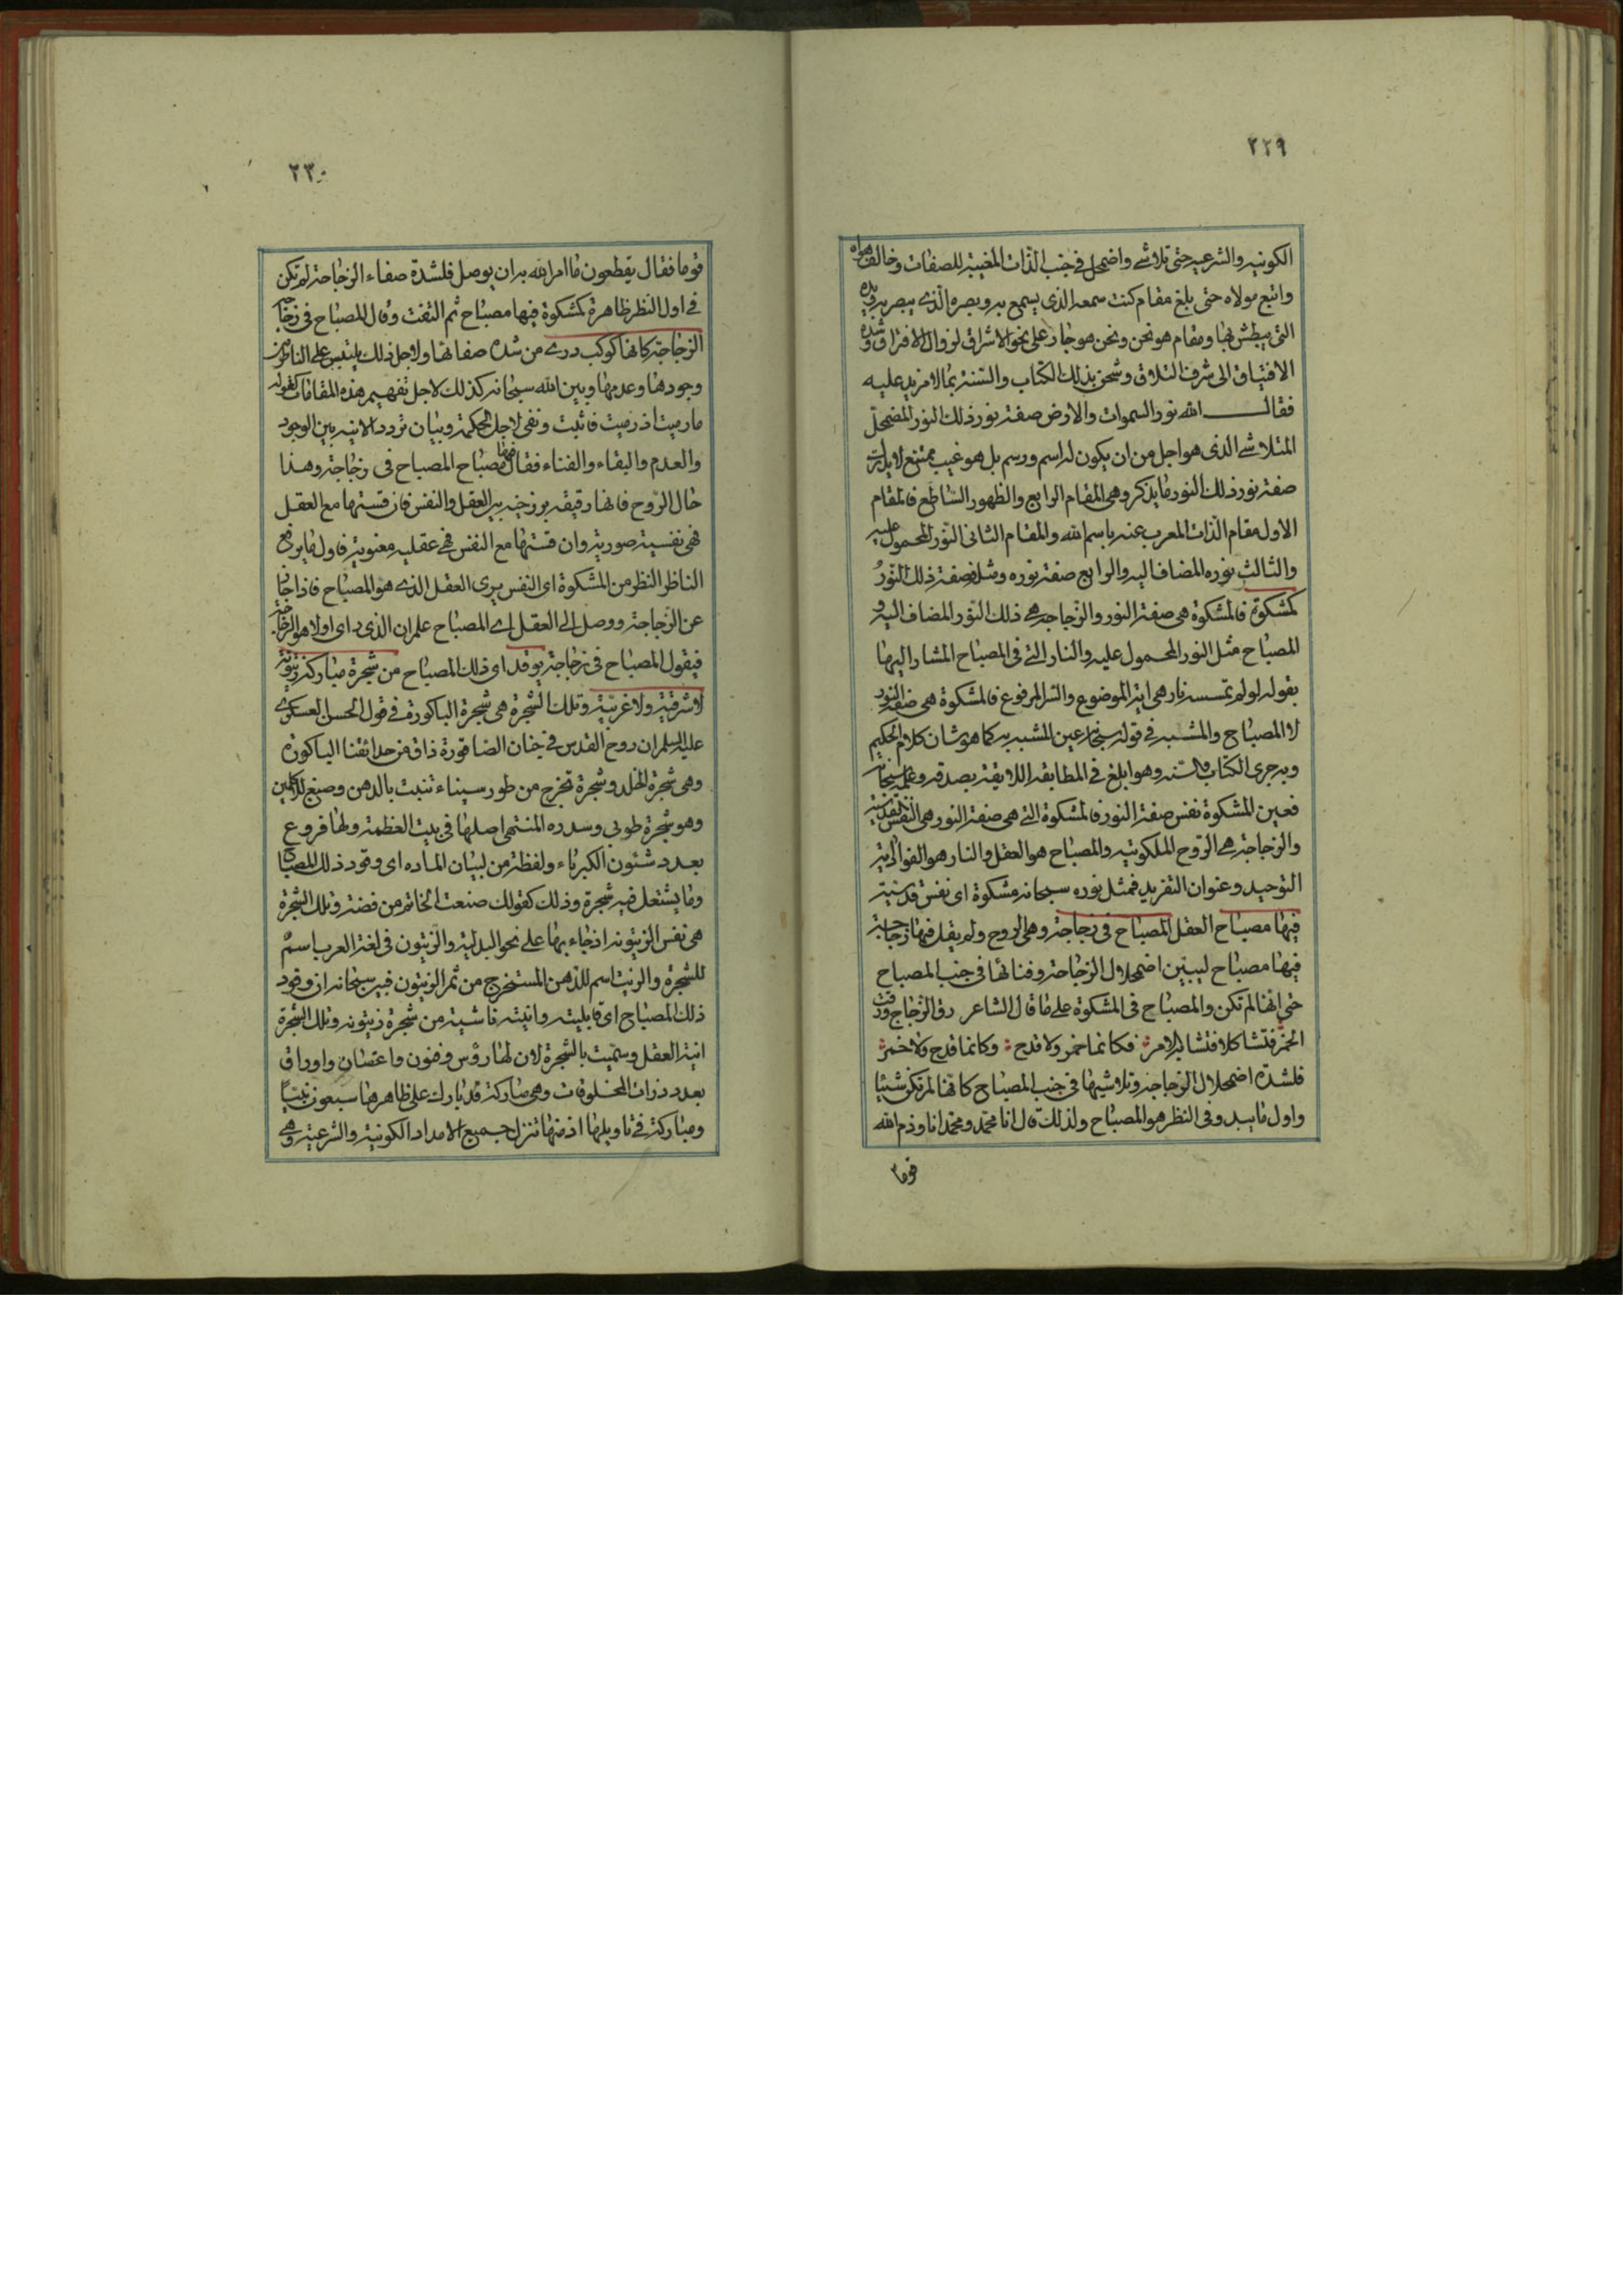 ٢٢٩
الكونيه والشرعيه حتى تلاشى واضمحل فى جنب الذات المغيبة للصفات وخالف هواه
واتبع مولاه حتى بلغ مقام كنت سمعه الذى يسمع به وبصره الذى يبصر به ويده
التى يبطش بها ومقام هو نحن ونحن هو جار على نحو الاشراق لزوال الافتراق وشده
الاشتياق الى شرف التلاق وشحن بذلك الكتاب والسنة بما لا مزيد عليه
فقال الله نور السموات والارض صفة نور ذلك النور المضمحل
المتلاشى الذى هو اجل من ان يكون له اسم ورسم بل هو غيب ممتنع لا يدرك
صفة نور ذلك النور ما يذكر وهى المقام الرابع والظهور الساطع فالمقام
الاول مقام الذات المعرب عنه باسم الله والمقام الثانى النور المحمول عليه
والثالث نوره المضاف اليه والرابع صفة نوره ومثله فصفة ذلك النور
كمشكوة فالمشكوة هى صفة النور والزجاجه هى ذلك النور المضاف اليه و
المصباح مثل النور المحمول عليه والنار التى فى المصباح المشار اليها
بقوله لو لم تمسسه نار هى اية الموضوع والسر المرفوع فالمشكوة هى صفة النور
لا المصباح والمشبه فى قوله سبحانه عين المشبه به كما هو شان كلام الحكيم
وبه جرى الكتاب والسنه وهو ابلغ فى المطابقه اللايقة بصدقه وعلمه سبحانه
فعين المشكوة نفس صفة النور فالمشكوة التى هى صفة النور هى النفس القدسية
والزجاجة هى الروح الملكوتيه والمصباح هو العقل والنار هو الفواد اية
التوحيد وعنوان التفريد فمثل نوره سبحانه مشكوة اى نفس قدسية
فيها مصباح العقل المصباح فى زجاجة وهى الروح ولم يقل فيها زجاجة
فيها مصباح ليبين اضمحلال الزجاجة وفنائها فى جنب المصباح
حتى انها لم تكن والمصباح فى المشكوة على ما قال الشاعر رق الزجاج ورقت
الخمر فتشاكلا فتشابه الامر فكانما خمر ولا قدح وكانما قدح ولا خمر
فلشدة اضمحلال الزجاجة وتلاشيها فى جنب المصباح كانها لم تكن شيئا
واول ما يبدو فى النظر هو المصباح ولذلك قال انا محمد ومحمد انا وذم الله
قوما
٢٣٠
قوما فقال يقطعون ما امر الله به ان يوصل فلشدة صفاء الزجاجة لم تكن
فى اول النظر ظاهرة كمشكوة فيها مصباح ثم التفت وقال المصباح فى زجاجة
الزجاجة كانها كوكب درى من شدة صفائها ولاجل ذلك يلتبس على الناظرين
وجودها وعدمها وبين الله سبحانه كذلك لاجل تفهيم هذه المقامات كقوله
ما رميت اذ رميت فاثبت ونفى لاجل الحكمة وبيان تردد الانيه بين الوجود
والعدم والبقاء والفناء فقال فيها مصباح المصباح فى زجاجة وهذا
حال الروح فانها رقيقه برزخيه بين العقل والنفس فان قستها مع العقل
فهى نفسية صورية وان قستها مع النفس فهى عقليه معنوية فاول ما يرفع
الناظر النظر من المشكوة اى النفس يرى العقل الذى هو المصباح فاذا جاز
عن الزجاجة ووصل الى العقل اى المصباح علم ان الذى راى اولا هو الزجاجة
فيقول المصباح فى زجاجة يوقد اى ذلك المصباح من شجرة مباركة زيتونة
لا شرقية ولا غربية وتلك الشجرة هى شجرة الباكورة فى قول الحسن العسكرى
عليه السلم ان روح القدس فى جنان الصاقورة ذاق من حدائقنا الباكورة
وهى شجرة الخلد وشجرة تخرج من طور سيناء تنبت بالدهن وصبغ للاكلين
وهو شجرة طوبى وسدره المنتهى اصلها فى بيت العظمة ولها فروع
بعدد شئون الكبرياء ولفظة من لبيان الماده اى وقود ذلك المصباح
وما يشتعل فيه شجرة وذلك كقولك صنعت الخاتم من فضة وتلك الشجرة
هى نفس الزيتونه اذ جاء بها على نحو البدلية والزيتون فى لغة العرب اسم
للشجرة والزيت اسم للدهن المستخرج من ثمر الزيتون فبين سبحانه ان وقود
ذلك المصباح اى قابليته وانيته ناشية من شجرة زيتونه وتلك الشجرة
انية العقل وسميت بالشجرة لان لها رؤس وفنون واغصان واوراق
بعدد ذرات المخلوقات وهى مباركة قد بارك على ظاهرها سبعون نبيا
ومباركة فى تاويلها اذ منها تنزل جميع الامداد الكونية والشرعية وهى